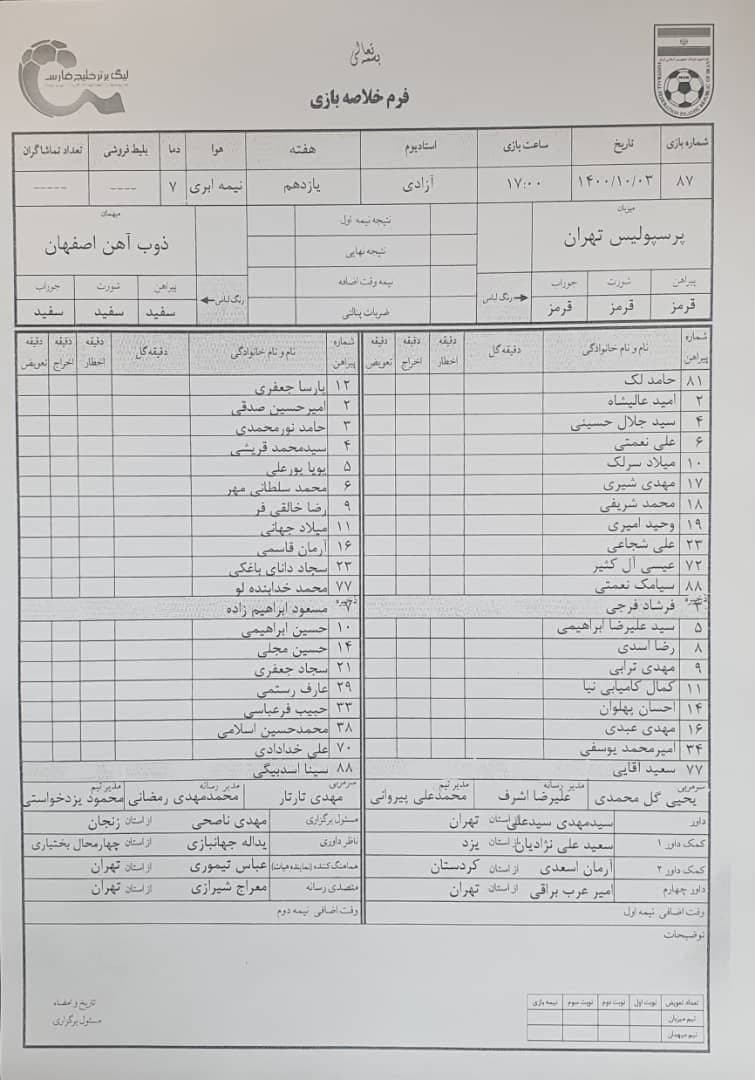 بسمه تعالی
لیگ برتر خلیج فارس
فرم خلاصه بازی
FOOTBALL FEDERATION ISLAMIC REPUBLIC OF IRAN
شماره بازی تاریخ ساعت بازی استادیوم هفته هوا دما بلیط فروشی تعداد تماشاگران
۸۷ ۱۴۰۰/۱۰/۰۳ ۱۷:۰۰ آزادی یازدهم نیمه ابری ۷ ---- -----
میزبان
پرسپولیس تهران
پیراهن شورت جوراب
قرمز قرمز قرمز
رنگ لباس
نتیجه نیمه اول
نتیجه نهایی
نیمه وقت اضافه
ضربات پنالتی
میهمان
ذوب آهن اصفهان
رنگ لباس
پیراهن شورت جوراب
سفید سفید سفید
شماره پیراهن نام و نام خانوادگی دقیقه گل دقیقه اخطار دقیقه اخراج دقیقه تعویض
۸۱ حامد لک
۲ امید عالیشاه
۴ سید جلال حسینی
۶ علی نعمتی
۱۰ میلاد سرلک
۱۷ مهدی شیری
۱۸ محمد شریفی
۱۹ وحید امیری
۲۳ علی شجاعی
۷۲ عیسی آل کثیر
۸۸ سیامک نعمتی
ذخیره
۳ فرشاد فرجی
۵ سید علیرضا ابراهیمی
۸ رضا اسدی
۹ مهدی ترابی
۱۱ کمال کامیابی نیا
۱۴ احسان پهلوان
۱۶ مهدی عبدی
۳۴ امیرمحمد یوسفی
۷۷ سعید آقایی
سرمربی یحیی گل محمدی مدیر رسانه علیرضا اشرف مدیر تیم محمدعلی پیروانی
شماره پیراهن نام و نام خانوادگی دقیقه گل دقیقه اخطار دقیقه اخراج دقیقه تعویض
۱۲ پارسا جعفری
۲ امیرحسین صدقی
۳ حامد نورمحمدی
۴ سیدمحمد قریشی
۵ پویا پورعلی
۶ محمد سلطانی مهر
۹ رضا خالقی فر
۱۱ میلاد جهانی
۱۶ آرمان قاسمی
۲۳ سجاد دانای باغکی
۷۷ محمد خدابنده لو
ذخیره
۷ مسعود ابراهیم زاده
۱۰ حسین ابراهیمی
۱۴ حسین مجلی
۲۱ سجاد جعفری
۲۹ عارف رستمی
۳۳ حبیب فرعباسی
۳۸ محمدحسین اسلامی
۷۰ علی خدادادی
۸۸ سینا اسدبیگی
سرمربی مهدی تارتار مدیر رسانه محمدمهدی رمضانی مدیر تیم محمود یزدخواستی
داور سیدمهدی سیدعلی از استان تهران
کمک داور ۱ سعید علی نژادیان از استان یزد
کمک داور ۲ آرمان اسعدی از استان کردستان
داور چهارم امیر عرب براقی از استان تهران
وقت اضافی نیمه اول
مسئول برگزاری مهدی ناصحی از استان زنجان
ناظر داوری یداله جهانبازی از استان چهارمحال بختیاری
هماهنگ کننده (نماینده هیات) عباس تیموری از استان تهران
متصدی رسانه معراج شیرازی از استان تهران
وقت اضافی نیمه دوم
توضیحات
تعداد تعویض نوبت اول نوبت دوم نوبت سوم نیمه بازی
تیم میزبان
تیم میهمان
تاریخ و امضاء
مسئول برگزاری